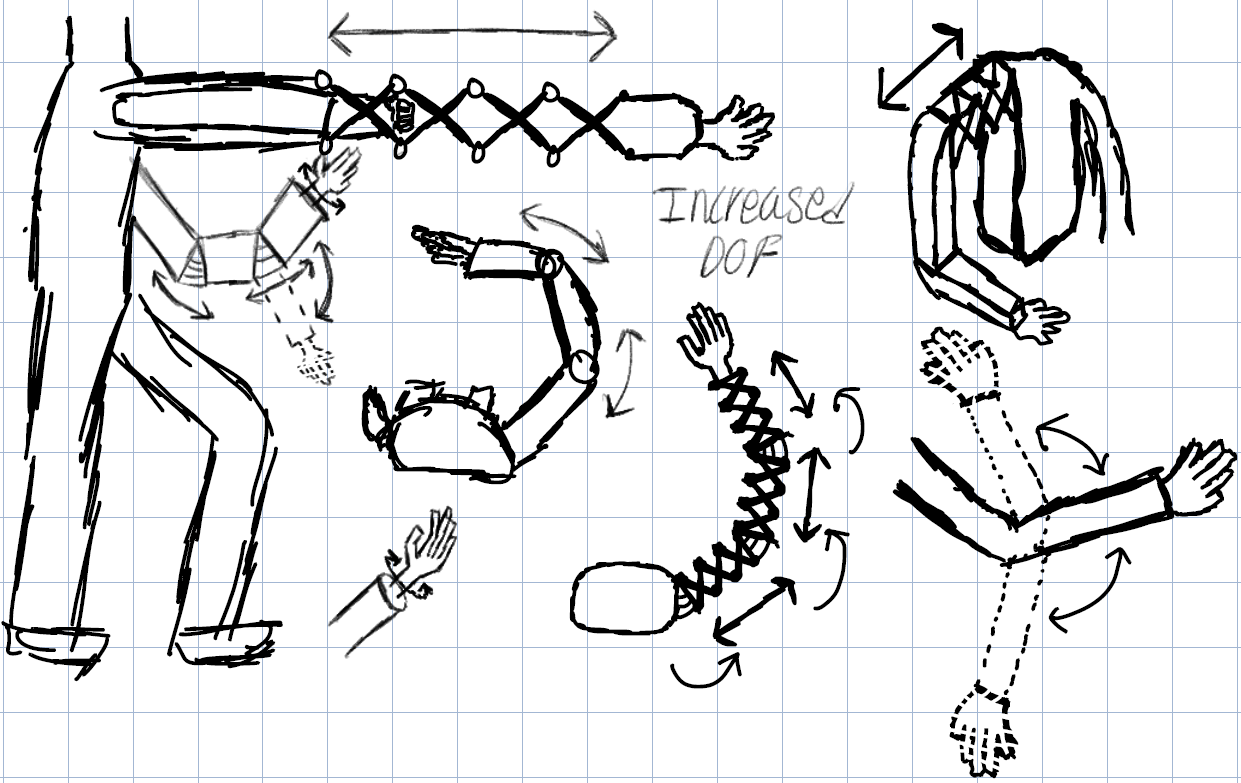 Increased
DOF